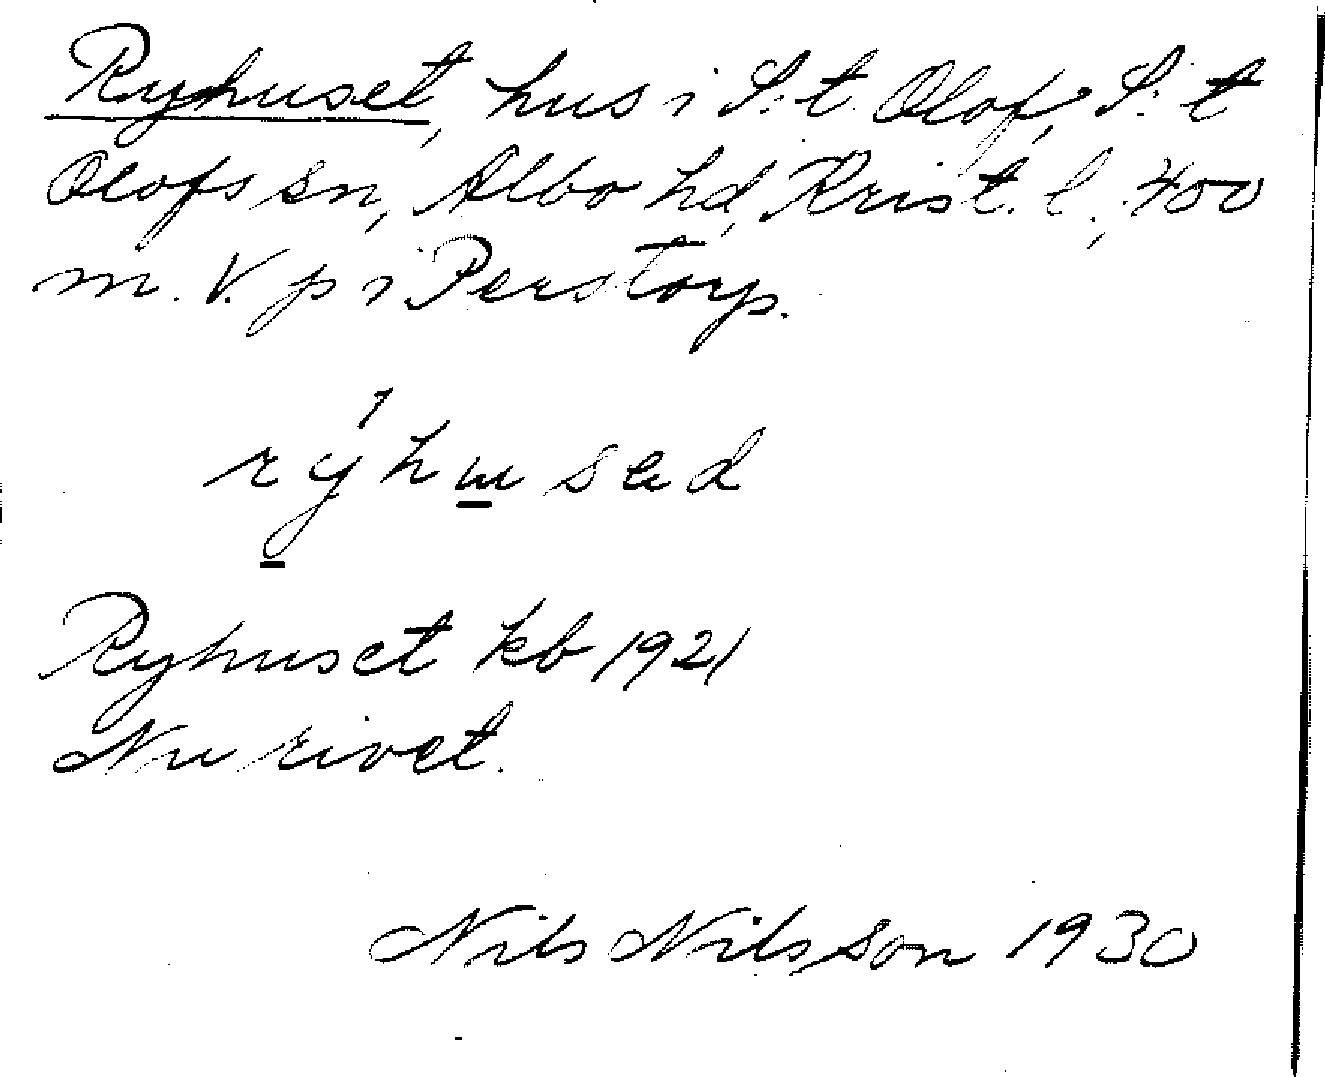 Ryhuset, hus i S:t Olof, S:t
Olofs sn, Albo hd, Krist. l., 400
m. V. p i Perstorp.
rýhɯsəd
Ryhuset kb 1921
Nu rivet.
Nils Nilsson 1930